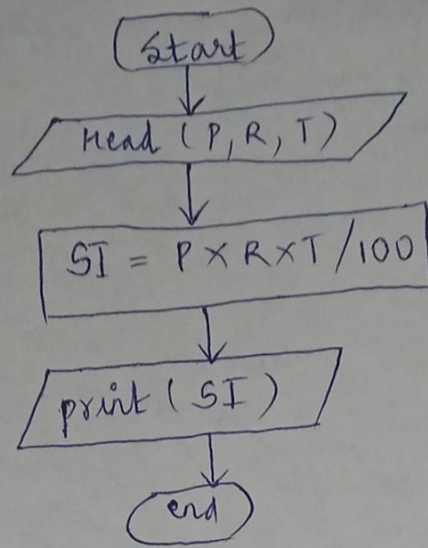 Start
Read (P, R, T)
SI = P X R X T / 100
print ( SI )
end